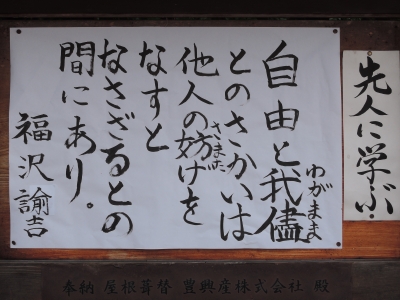 先人に学ぶ・
自由と我儘
わがまま
とのさかいは
他人の妨けを
さまた
なすと
なさざるとの
間にあり。
福沢諭吉
奉納 屋根葺替 豊興産株式会社 殿